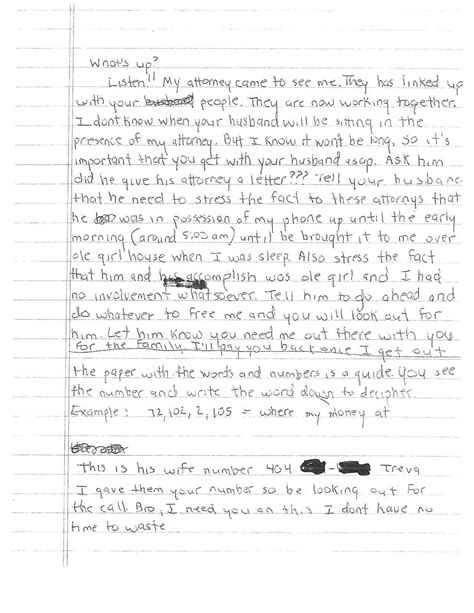 What's up?
Listen!! My attorney came to see me. They has linked up
with your people. They are now working together.
I dont know when your husband will be sitting in the
presence of my attorney. But I know it won't be long, so it's
important that you get with your husband asap. Ask him
did he give his attorney a letter??? Tell your husband
that he need to stress the fact to these attornys that
he was in possession of my phone up until the early
morning (around 5:00 am) until he brought it to me over
ole girl house when I was sleep. Also stress the fact
that him and accomplish was ole girl and I had
no involvement whatsoever. Tell him to go ahead and
do whatever to free me and you will look out for
him. Let him know you need me out there with you
for the family. I'll pay you back once I get out
the paper with the words and numbers is a guide. You see
the number and write the word down to decipher.
Example: 72, 102, 2, 105 = where my money at
This is his wife number 404 - Treva
I gave them your number so be looking out for
the call Bro, I need you on this I dont have no
time to waste